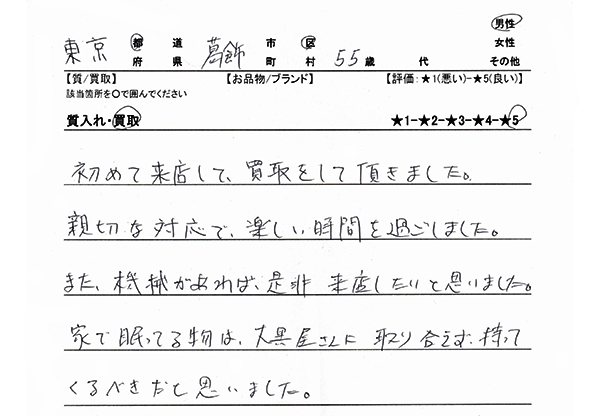 男性
東京 都道 葛飾 市区 55歳 代 女性
府県 町村 その他
【質/買取】 【お品物/ブランド】 【評価:★1(悪い)-★5(良い)】
該当箇所を〇で囲んでください
質入れ・買取 ★1-★2-★3-★4-★5
初めて来店して、買取をして頂きました。
親切な対応で、楽しい時間を過ごしました。
また、機械があれば、是非 来店したいと思いました。
家で眠ってる物は、大黒屋さんに 取り合えず、持って
くるべきだと思いました。